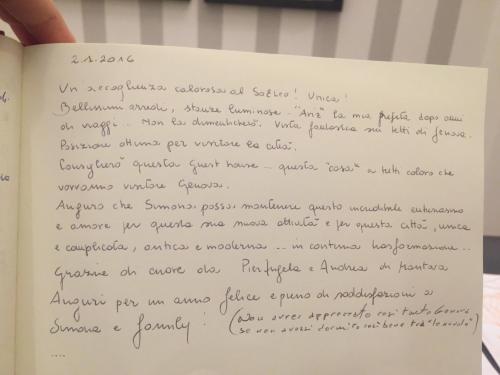 2.1.2016
Un accoglienza calorosa al Soleio! Unica!
Bellissimi arredi, stanze luminose. "Aria" la mia preferita dopo anni
di viaggi... Non la dimenticherò. Vista fantastica sui tetti di Genova.
Posizione ottima per visitare la città.
Consiglierò questa Guest house... questa "casa" a tutti coloro che
vorranno visitare Genova.
Auguro che Simona possa mantenere questo incredibile entusiasmo
e amore per questa sua nuova attività e per questa città, unica
e complicata, antica e moderna... in continua trasformazione..
Grazie di cuore da e Andrea di Mantova
Auguri per un anno felice e pieno di soddisfazioni a
Simona e family! (Non avrei apprezzato così tanto Genova
se non avessi dormito così bene tra "le nuvole")
....